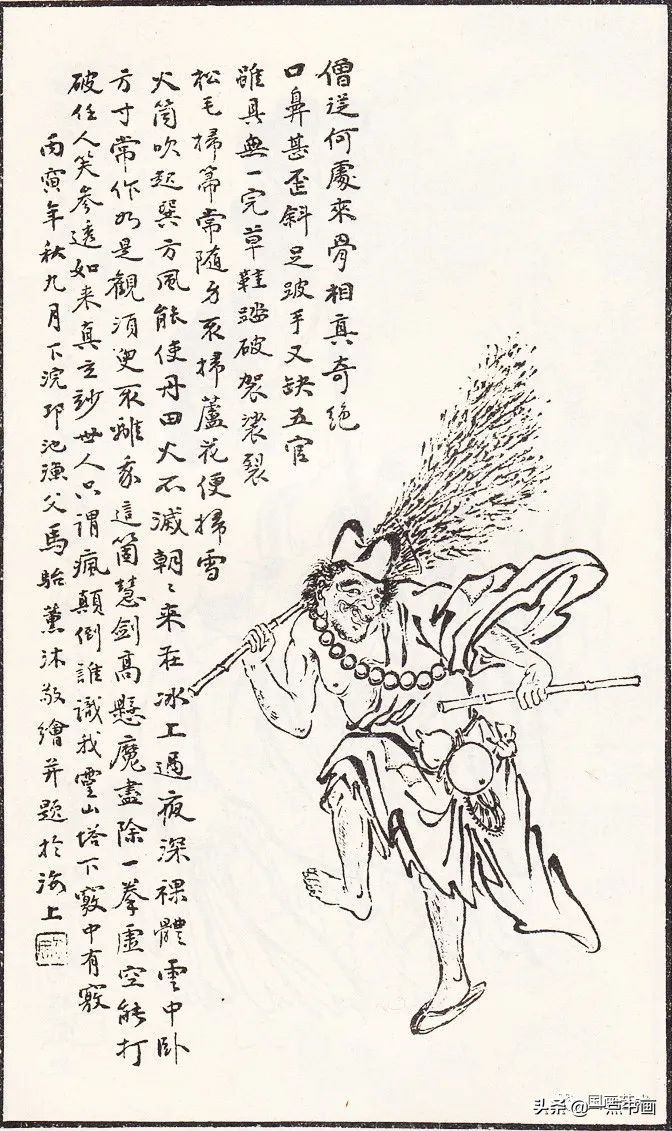 僧從何處來骨相真奇絕
口鼻甚歪斜足跛手又缺五官
雖具無一完草鞋踏破袈裟裂
松毛掃帚常隨身不掃蘆花便掃雪
火筒吹起巽方風能使丹田火不滅朝〻來在冰上過夜深裸體雪中臥
方寸常作如是觀須臾不離我這箇慧劍高懸魔盡除一拳虛空能打
破任人笑參透如来真玄妙世人只謂瘋顛倒誰識我靈山塔下竅中有竅
丙寅年秋九月下浣邛池漁父馬駘薰沐敬繪并題於海上
国画艺术
头条@一点书画